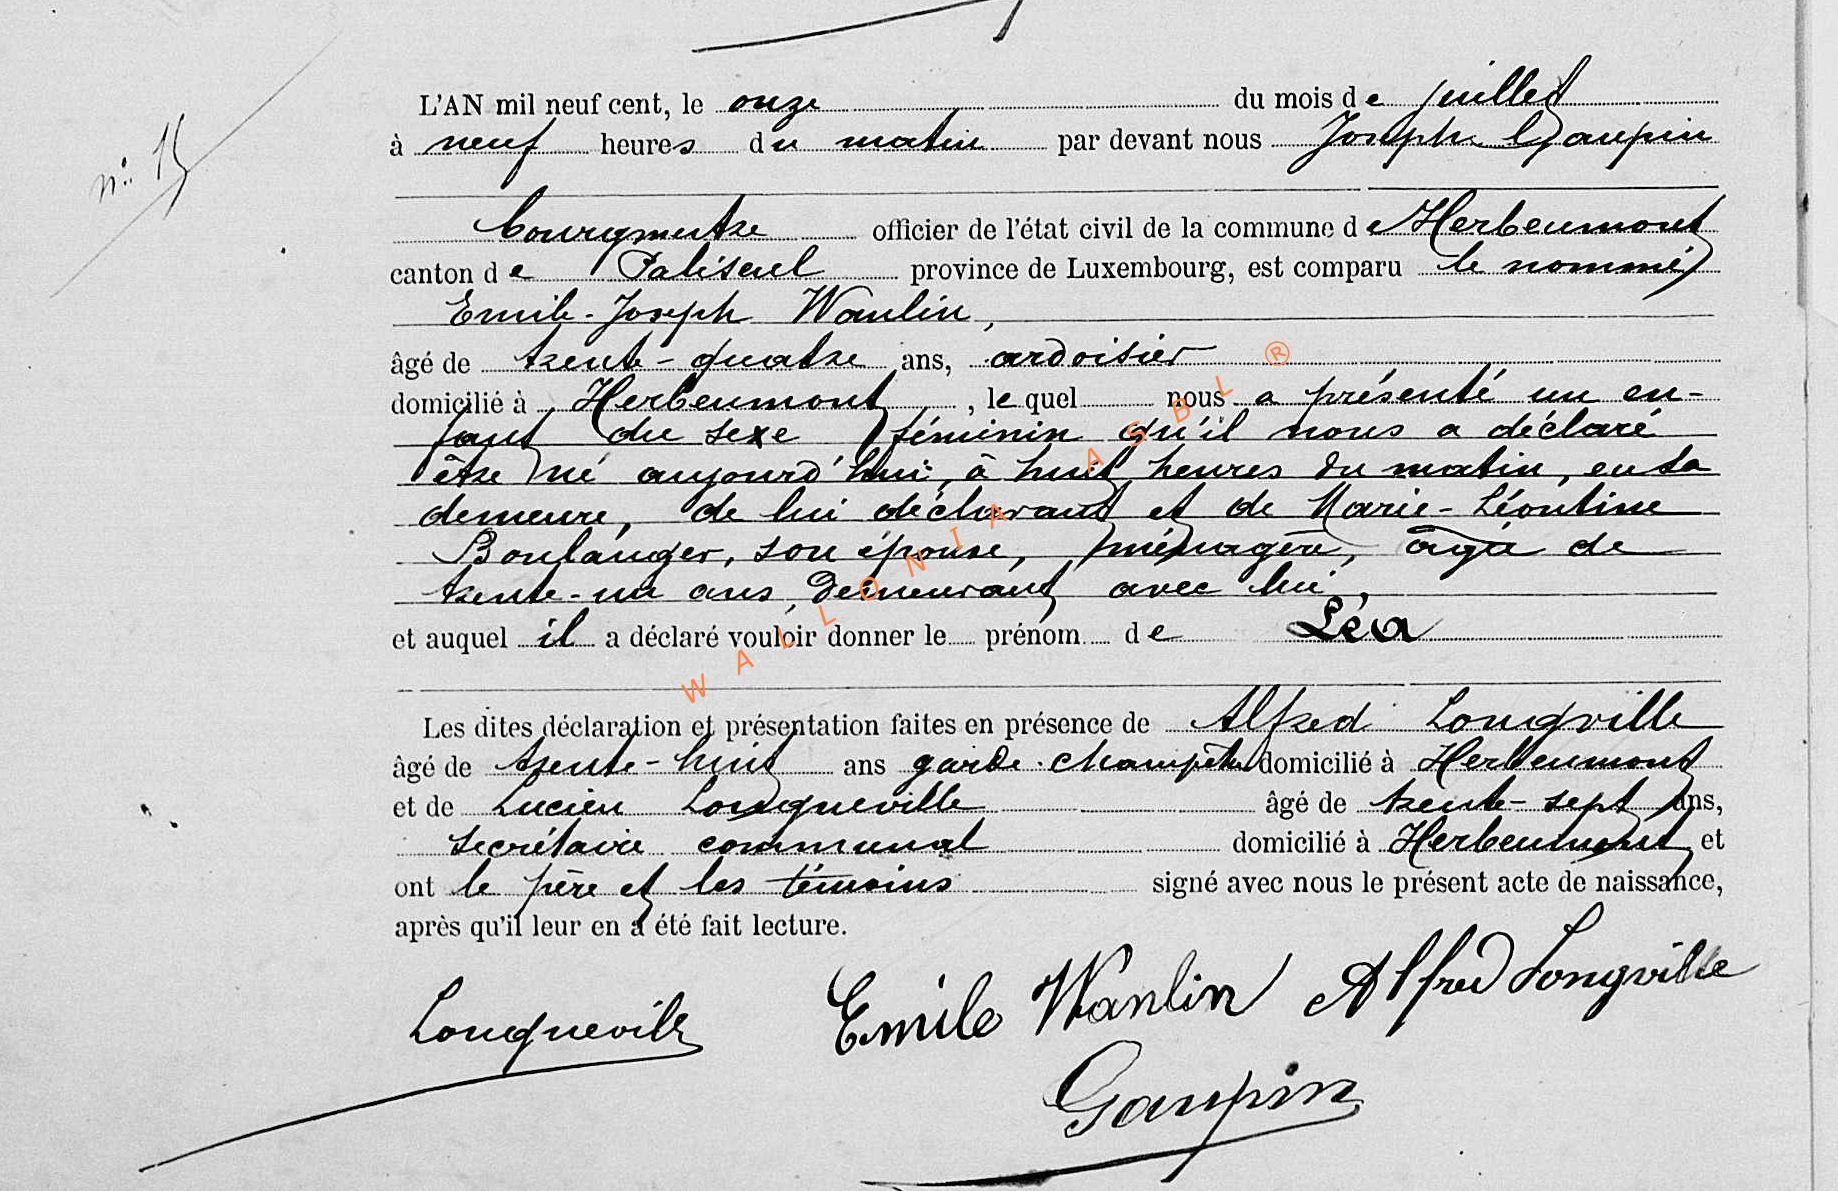 L'AN mil neuf cent, le onze du mois de juillet
n° 15
à neuf heures du matin par devant nous Joseph Gaupin
bourgmestre officier de l'état civil de la commune d Herbeumont
canton de Paliseul province de Luxembourg, est comparu le nommé
Emile-Joseph Wanlin,
âgé de trente-quatre ans, ardoisier
domicilié à Herbeumont, lequel nous a présenté un en-
fant du sexe féminin qu'il nous a déclaré
être né aujourd'hui, à huit heures du matin, en sa
demeure, de lui déclarant et de Marie-Léontine
Boulanger, son épouse, ménagère, âgée de
trente-un ans, demeurant avec lui,
et auquel il a déclaré vouloir donner le prénom de Léa
WALLONIA ASBL ®
Les dites déclaration et présentation faites en présence de Alfred Longville
âgé de trente-huit ans garde-champêtre domicilié à Herbeumont
et de Lucien Longueville âgé de trente-sept ans,
secrétaire communal domicilié à Herbeumont et
ont le père et les témoins signé avec nous le présent acte de naissance,
après qu'il leur en a été fait lecture.
Longueville Emile Wanlin Alfred Longville
Gaupin